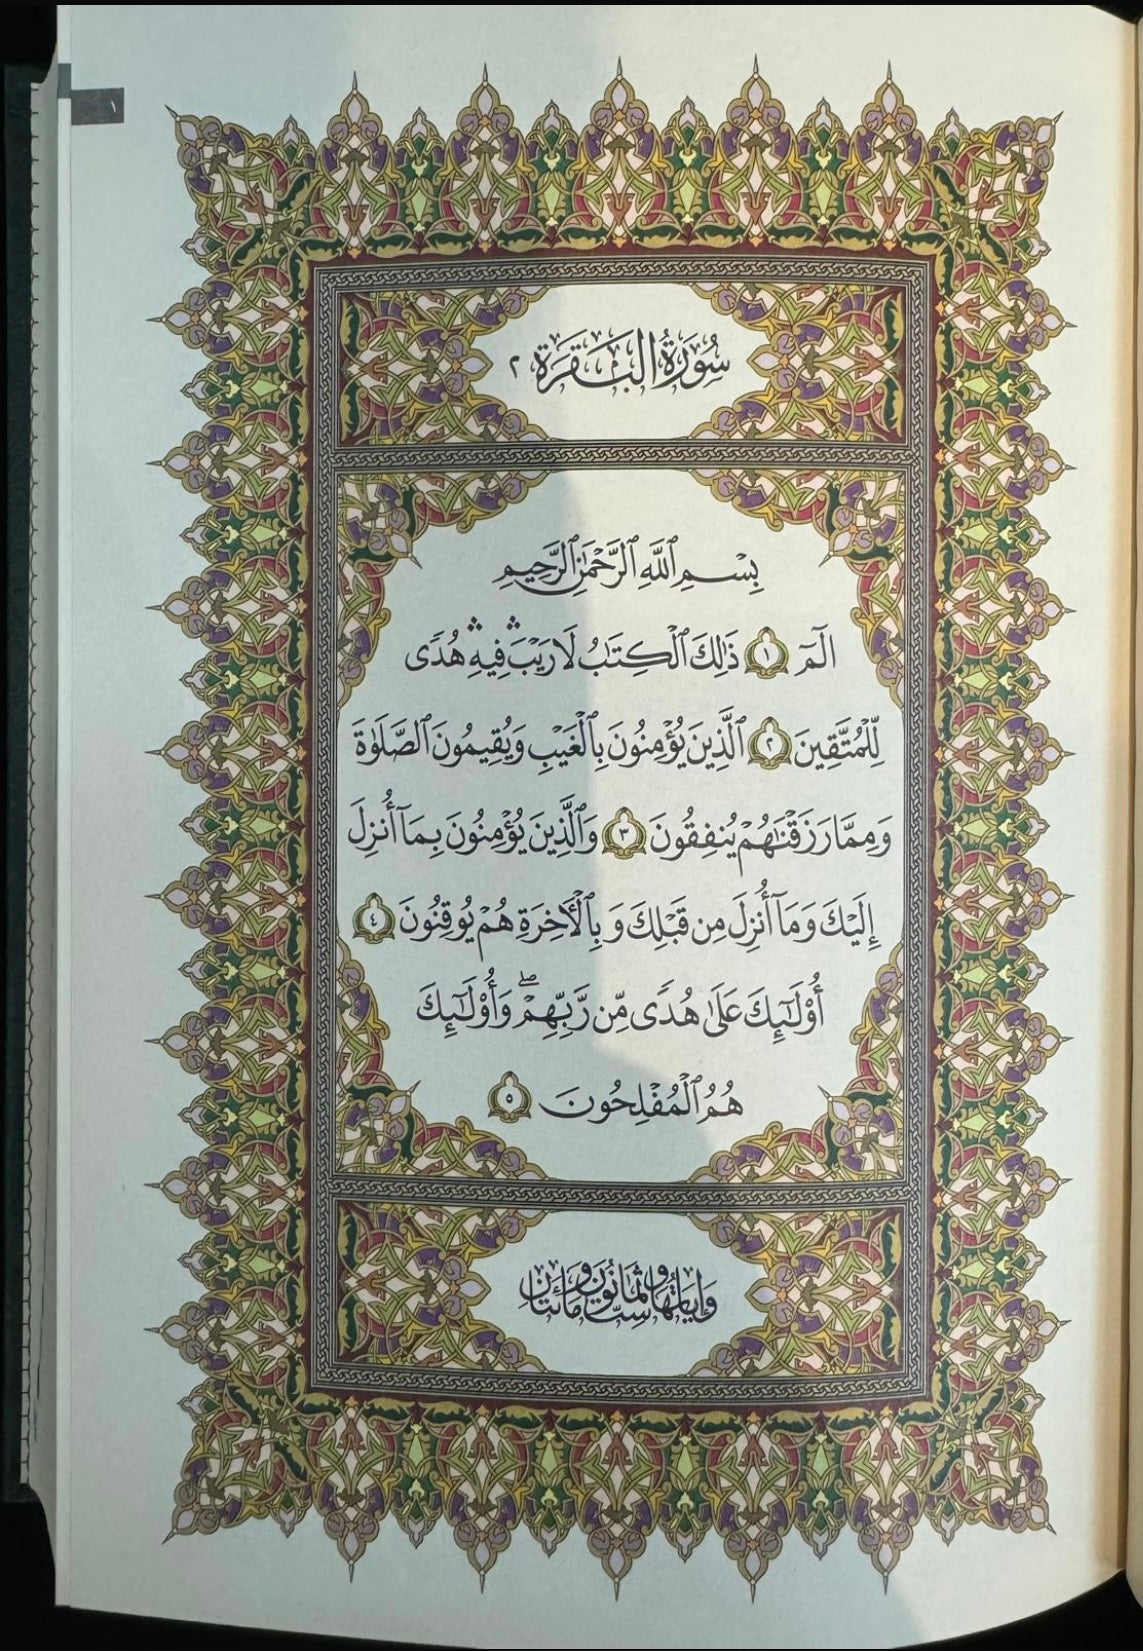 ١
سُورَةُ البَقَرَة ٢
بِسْمِ ٱللَّهِ ٱلرَّحْمَٰنِ ٱلرَّحِيمِ
الٓمٓ ١ ذَٰلِكَ ٱلْكِتَٰبُ لَا رَيْبَۛ فِيهِۛ هُدًى
لِّلْمُتَّقِينَ ٢ ٱلَّذِينَ يُؤْمِنُونَ بِٱلْغَيْبِ وَيُقِيمُونَ ٱلصَّلَوٰةَ
وَمِمَّا رَزَقْنَٰهُمْ يُنفِقُونَ ٣ وَٱلَّذِينَ يُؤْمِنُونَ بِمَآ أُنزِلَ
إِلَيْكَ وَمَآ أُنزِلَ مِن قَبْلِكَ وَبِٱلْأَخِرَةِ هُمْ يُوقِنُونَ ٤
أُوْلَٰٓئِكَ عَلَىٰ هُدًى مِّن رَّبِّهِمْۖ وَأُوْلَٰٓئِكَ
هُمُ ٱلْمُفْلِحُونَ ٥
وَآيَاتُهَا سِتٌّ وَثَمَانُونَ وَمَائَتَانِ